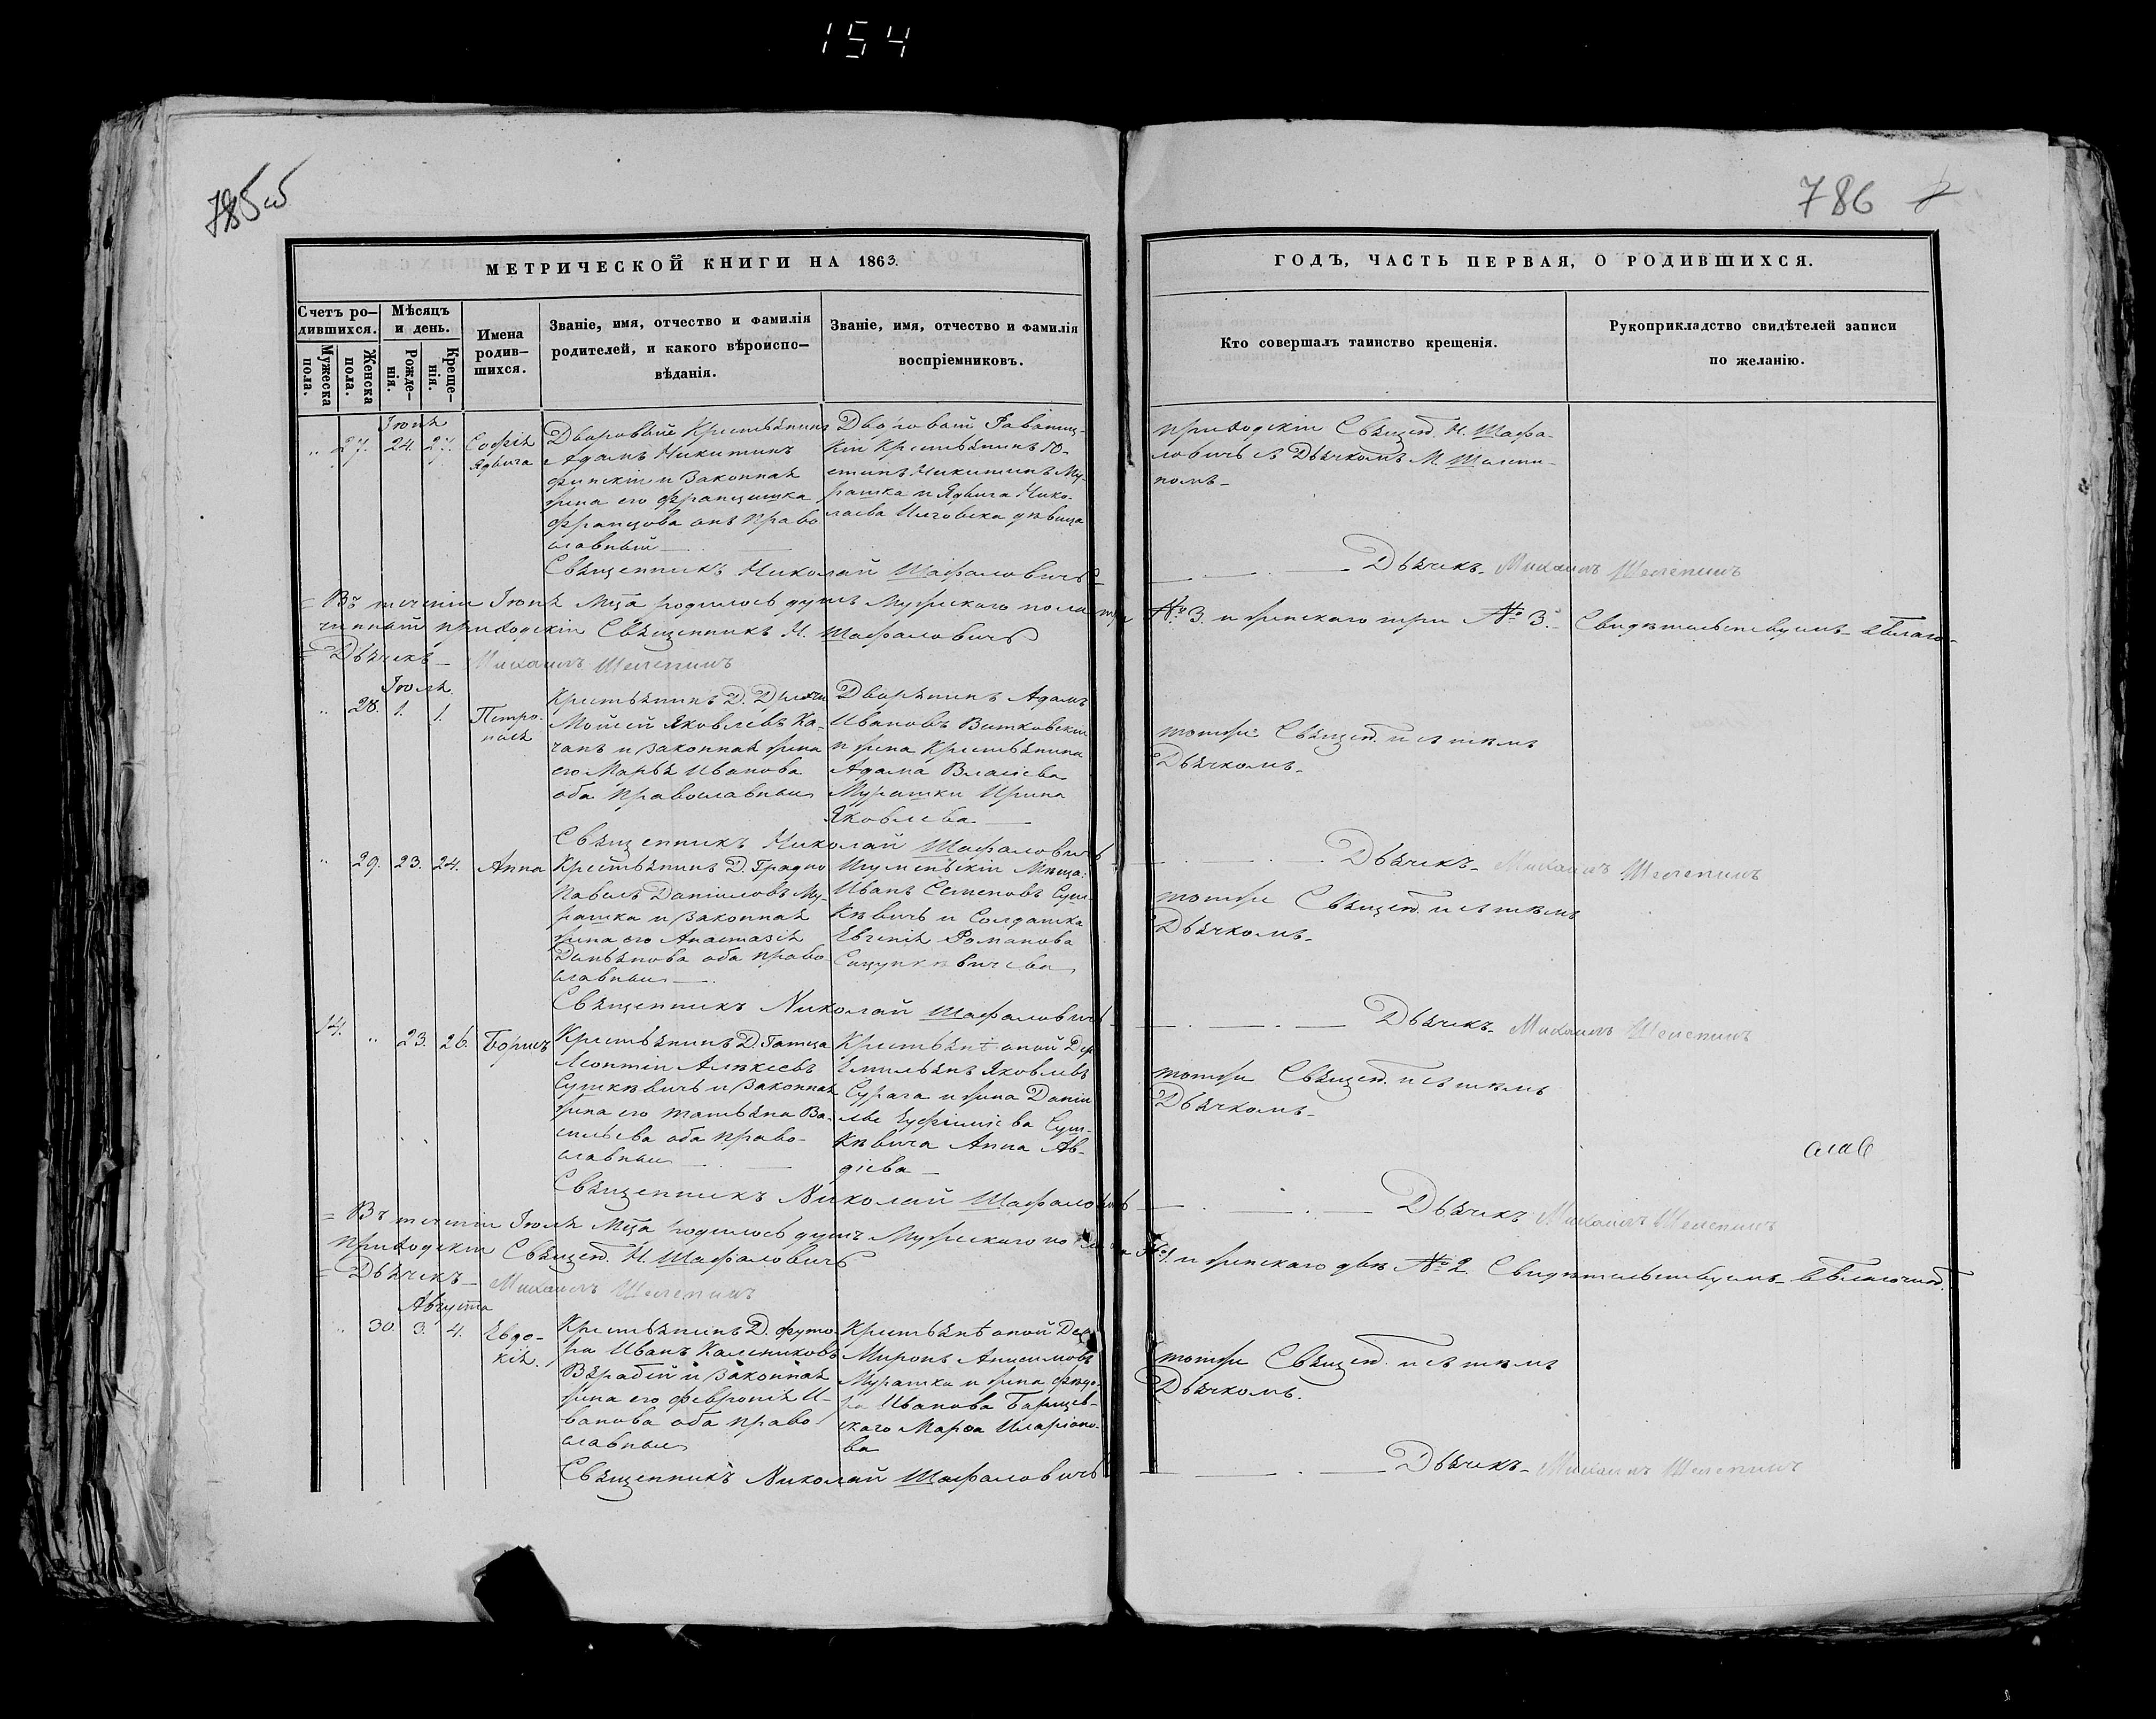 154
785 об
786
МЕТРИЧЕСКОЙ КНИГИ НА 1863.
ГОДЪ, ЧАСТЬ ПЕРВАЯ, О РОДИВШИХСЯ.
Счетъ ро-
дившихся.
Мужеска пола.
Женска пола.
Мѣсяцъ
и день.
Рожде-
нія.
Креще-
нія.
Имена
родив-
шихся.
Званіе, имя, отчество и фамилія
родителей, и какого вѣроиспо-
вѣданія.
Званіе, имя, отчество и фамилія
воспріемниковъ.
Кто совершалъ таинство крещенія.
Рукоприкладство свидѣтелей записи
по желанію.
Іюня
27. 24. 27. Софія
Ядвига
Дворовый Крестьянинъ
Адамъ Никитинъ
и законная
жена его Францишка
Францова онъ право
славный
Дворовый
кій Крестьянинъ Ю-
стинъ Никитинъ Му-
рашка и Ядвига Нико-
лаева дѣвица
приходскій Свящ. Н. Шафа-
ловичъ съ Дьячкомъ М. Шелепи-
номъ
Священникъ Николай Шафаловичъ
Дьячекъ Михаилъ Шелепинъ
Въ теченіи Іюня Мца родилось душъ Мужескаго пола три № 3. и женскаго три № 3. Свидѣтельствуемъ благо-
чинный приходскій Священникъ Н. Шафаловичъ
Дьячекъ Михаилъ Шелепинъ
Іюля
28. 1. 1. Петро-
нія
Крестьянинъ Д.
Мойсей Яковлевъ Ка-
чанъ и законная жена
его Марья Иванова
оба православные
Дворянинъ Адамъ
Ивановъ Витковскій
и жена Крестьянина
Адама Власіева
Мурашки Ирина
Яковлева
тотже Свящ. и съ тѣмъ
Дьячкомъ
Священникъ Николай Шафаловичъ
Дьячекъ Михаилъ Шелепинъ
29. 23. 24. Анна
Крестьянинъ Д. Градно
Павелъ Даніиловъ Му-
рашка и законная
жена его Анастасія
Демьянова оба право
славные
Игуменскій Мѣща:
Иванъ Семеновъ Суш-
кѣвичъ и Солдатка
Евгенія Романова
тотже Свящ. и съ тѣмъ
Дьячкомъ
Священникъ Николай Шафаловичъ
Дьячекъ Михаилъ Шелепинъ
14. 23. 26. Борисъ
Крестьянинъ Д. Гатца
Леонтій Алѣксѣевъ
Сушкѣвичъ и законная
жена его Татьяна Ва-
сильева оба право-
славные
Крестьянѣ оной Дер
Емильянъ Яковлевъ
Сурага и жена Даніи
ла Еуфиміева Суш-
кѣвича Анна Ав-
діева
тотже Свящ. и съ тѣмъ
Дьячкомъ
слав
Священникъ Николай Шафаловичъ
Дьячекъ Михаилъ Шелепинъ
Въ теченіи Іюля Мца родилось душъ Мужескаго пола № 1. и женскаго двѣ № 2. Свидѣтельствуемъ благочин.
приходскій Свящ. Н. Шафаловичъ
Дьячекъ Михаилъ Шелепинъ
Августа
30. 3. 4. Евдо-
кія.
Крестьянинъ Д. Футо-
ра Иванъ Калениковъ
Вѣрабій и законная
жена его Февронія И-
ванова оба право
славные
Крестьянѣ оной Дер
Миронъ Анисимовъ
Мурашка и жена Фѣдо-
ра Иванова Барщев-
скаго Марѳа Иларіоно-
ва
тотже Свящ. и съ тѣмъ
Дьячкомъ.
Священникъ Николай Шафаловичъ
Дьячекъ Михаилъ Шелепинъ